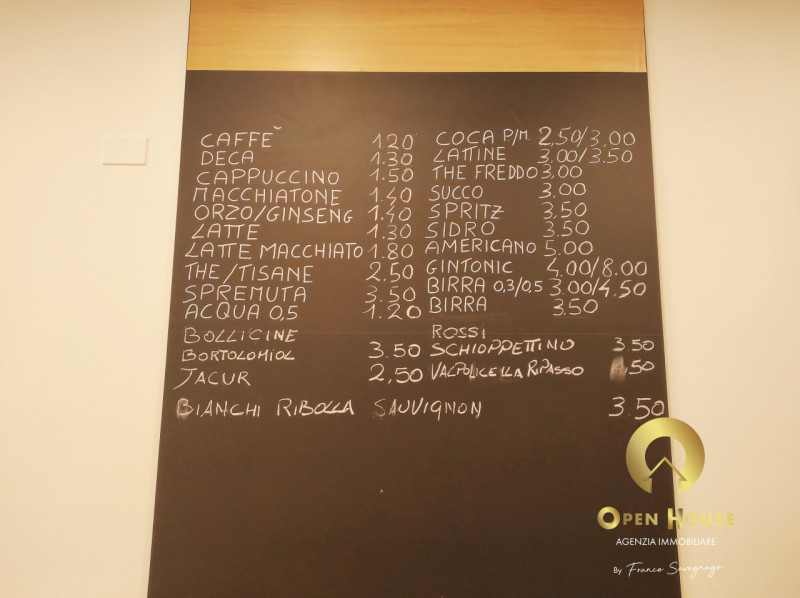 CAFFÈ 1.20
DECA 1.30
CAPPUCCINO 1.50
MACCHIATONE 1.40
ORZO/GINSENG 1.40
LATTE 1.30
LATTE MACCHIATO 1.80
THE/TISANE 2.50
SPREMUTA 3.50
ACQUA 0,5 1.20
BOLLICINE
BORTOLOMIOL 3.50
JACUR 2,50
COCA P/M. 2,50/3,00
LATTINE 3.00/3.50
THE FREDDO 3,00
SUCCO 3,00
SPRITZ 3,50
SIDRO 3.50
AMERICANO 5.00
GINTONIC 4.00/8.00
BIRRA 0,3/0,5 3.00/4.50
BIRRA 3.50
ROSSI
SCHIOPPETTINO 3.50
VALPOLICELLA RIPASSO
BIANCHI RIBOLLA SAUVIGNON 3.50
OPEN HOUSE
AGENZIA IMMOBILIARE
By Franco Savegnago